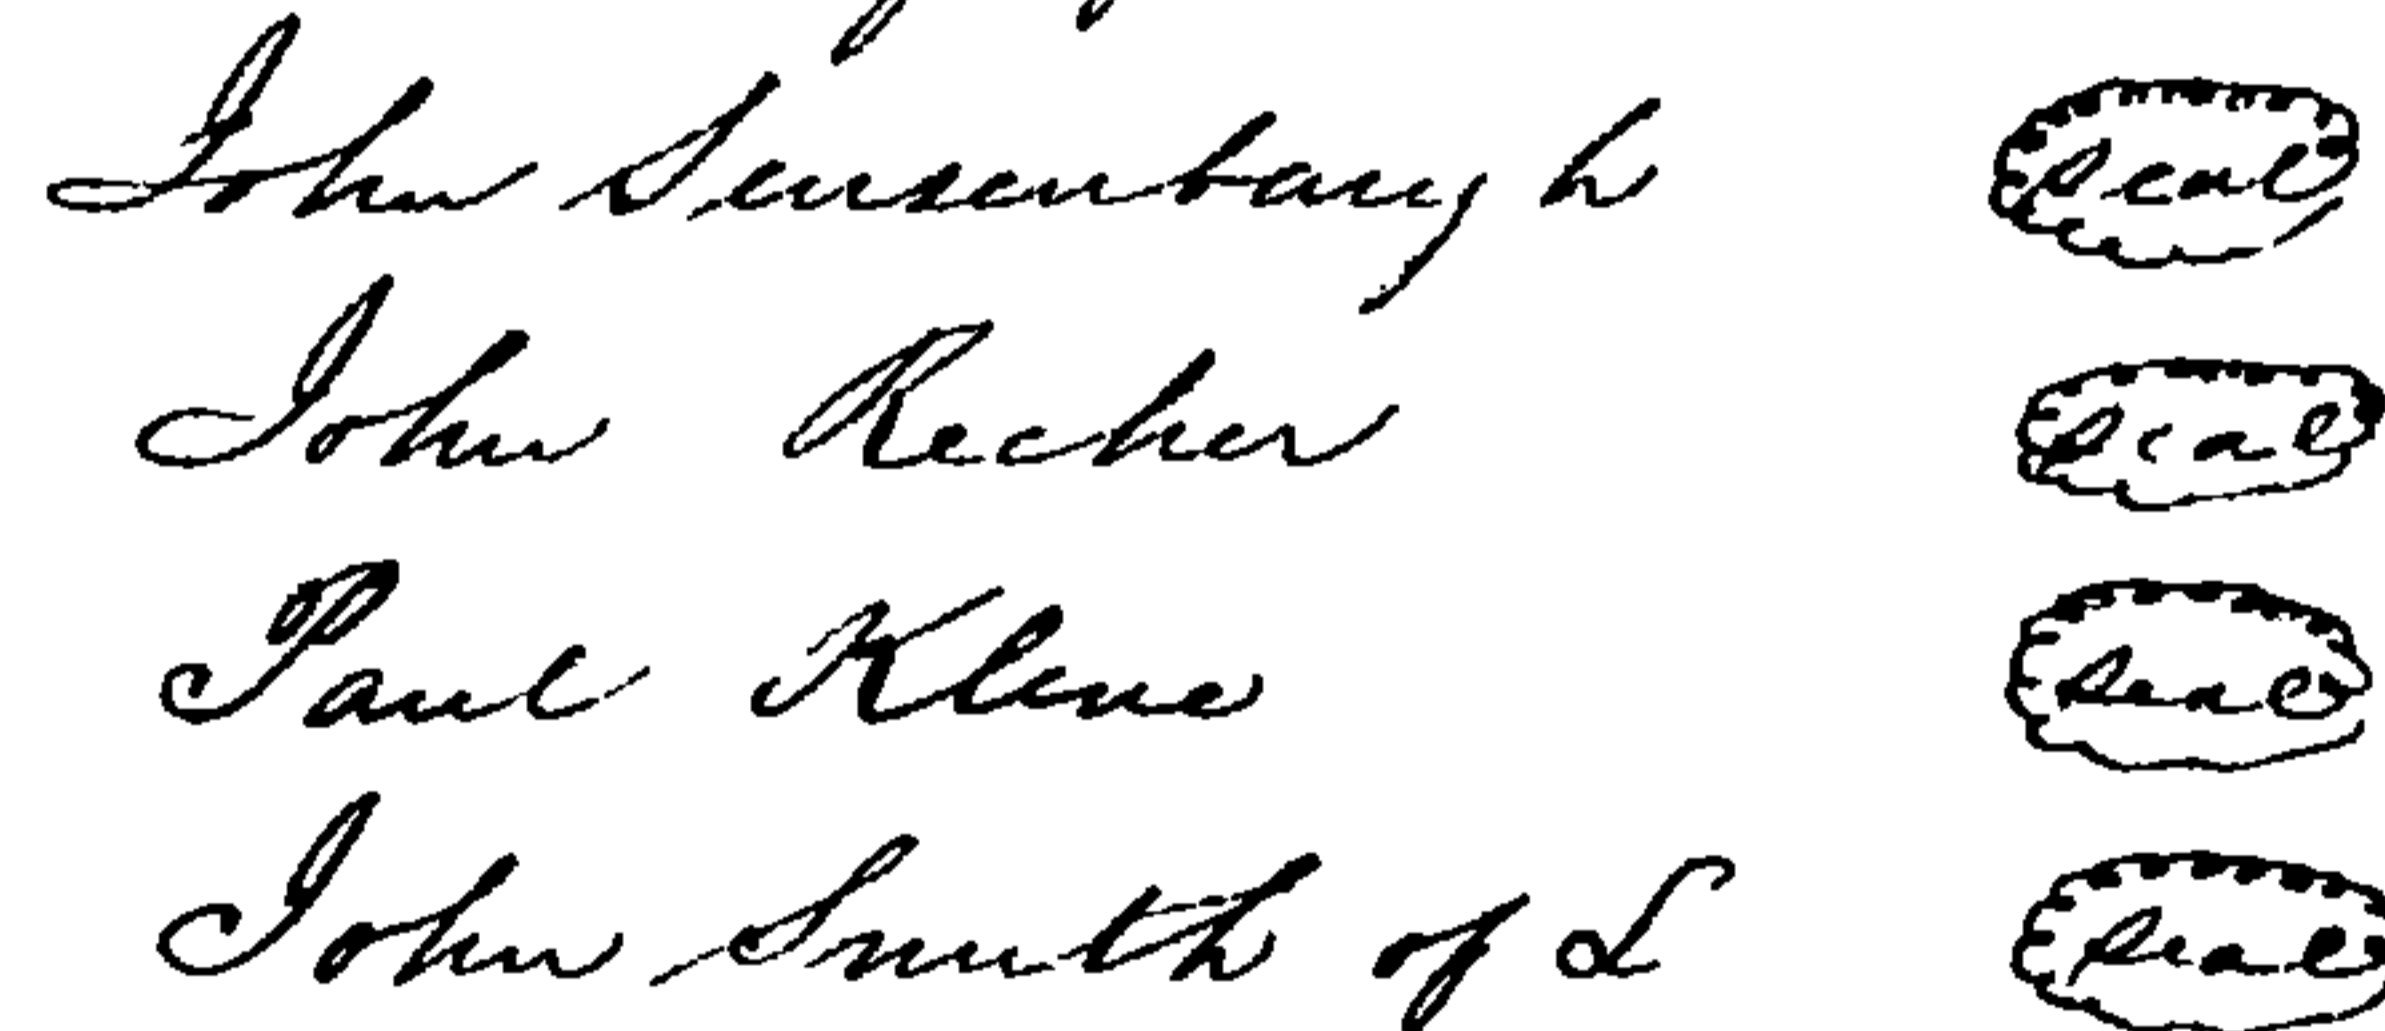 John Sensenbaugh Seal
John Recher Seal
Paul Klene Seal
John Smith of L Seal